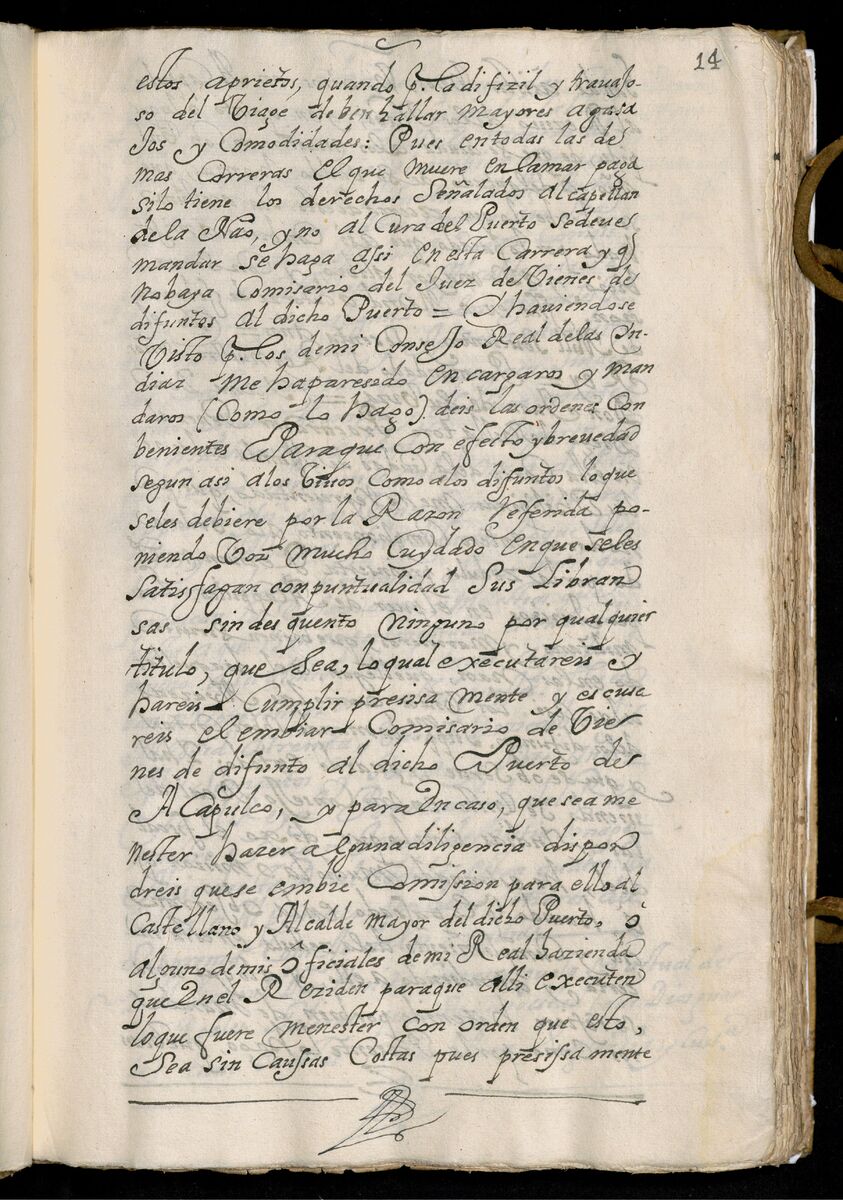 14
estos aprietos, quando p.r la difizil y travajo-
so del Viage deben hallar mayores agasa
Jos y Comodidades: Pues entodas las de
mas Carreras el que muere en lamar paga
silo tiene los derechos Señalados al capellan
de la Nao, y no al Cura del Puerto se deve
mandar se haga assi en esta Carrera y q
no baya Comisario del Juez de Vienes de
difuntos al dicho Puerto = Y haviendose
Visto p.r los demi Consejo Real delas Yn-
dias me haparesido en cargaros y man
daros (Como lo hago) deis las ordenes Con
benientes Paraque Con efecto y brevedad
segun asi alos Vivos Como alos difuntos loque
seles debiere por la Razon Referida po-
niendo Vos mucho Cuydado en que seles
Satisfagan con puntualidad Sus Libran
sas sin des quento ninguno por qualquier
titulo, que Sea, lo qual executareis y
hareis Cumplir presisa mente y escusa
reis el embiar Comisario de Vie
nes de difunto al dicho Puerto de
ACapulco, y para En caso, que sea me
nester hazer alguna diligencia dispon
dreis que se embie Comission para ello al
Castellano y Alcalde mayor del dicho Puerto, ô
alguno demis ôficiales demi Real hazienda
que En el Reziden paraque alli executen
loque fuere menester con orden que esto,
Sea sin Caussas Costas pues presissa mente